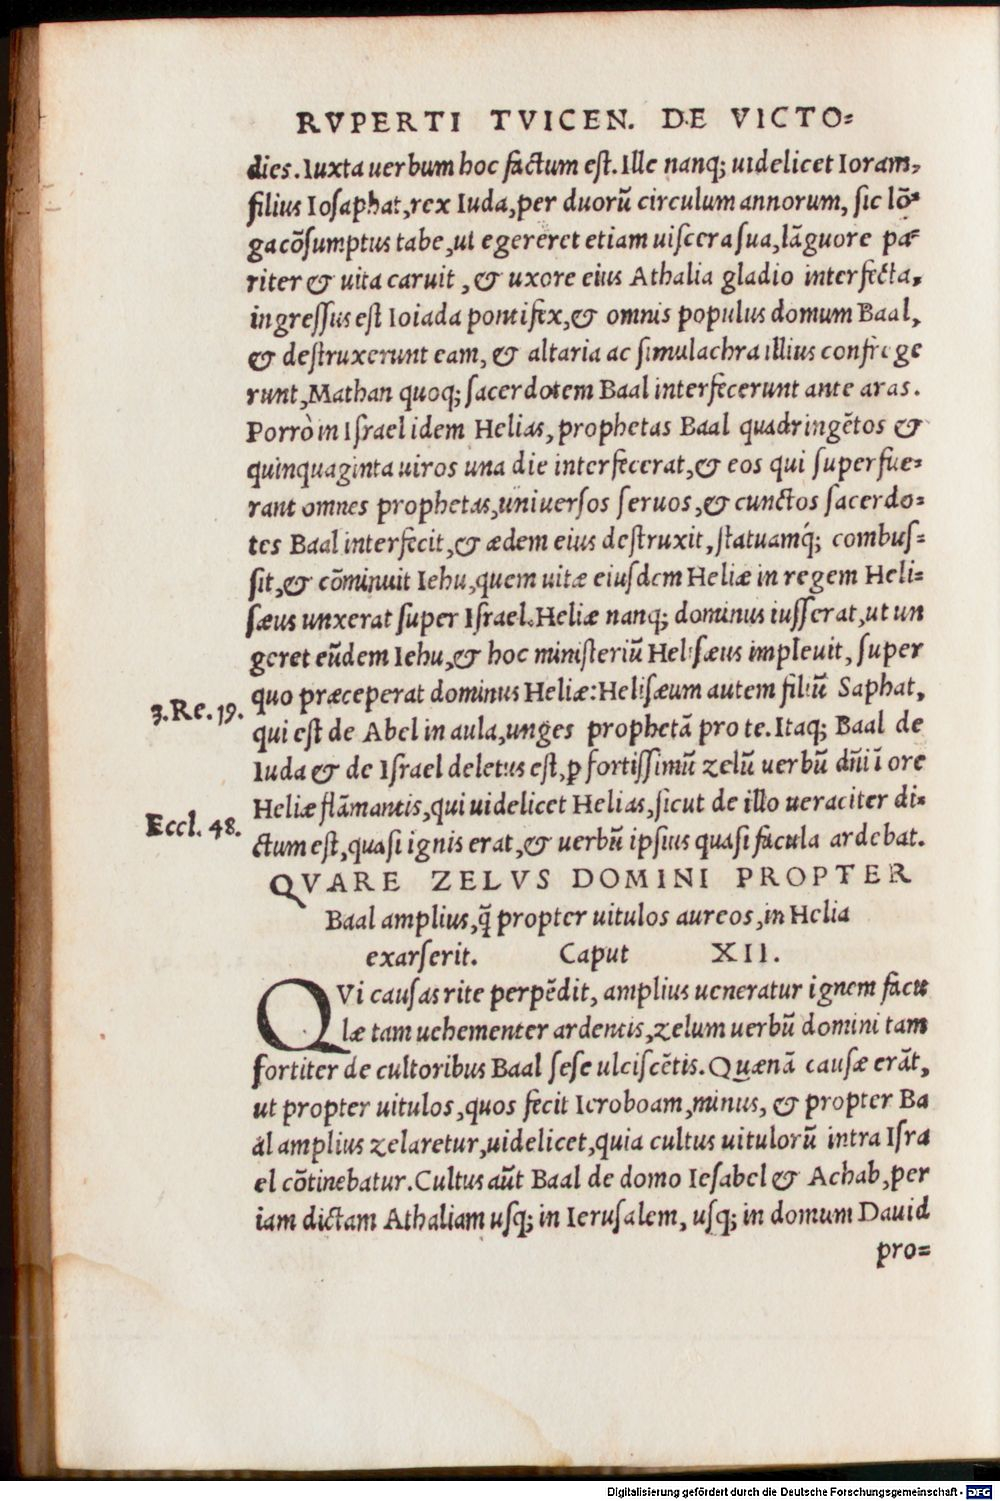 RVPERTI TVICEN. DE VICTO=
dies. Iuxta uerbum hoc factum est. Ille nanq; uidelicet Ioram,
filius Iosaphat, rex Iuda, per duorū circulum annorum, sic lō=
ga cōsumptus tabe, ut egereret etiam uiscera sua, lāguore pa=
riter & uita caruit, & uxore eius Athalia gladio interfecta,
ingressus est Ioiada pontifex, & omnis populus domum Baal,
& destruxerunt eam, & altaria ac simulachra illius confrege
runt, Mathan quoq; sacerdotem Baal interfecerunt ante aras.
Porrò in Israel idem Helias, prophetas Baal quadringētos &
quinquaginta uiros una die interfecerat, & eos qui superfue=
rant omnes prophetas, uniuersos seruos, & cunctos sacerdo=
tes Baal interfecit, & ædem eius destruxit, statuamq́; combus=
sit, & cōminuit Iehu, quem uitæ eiusdem Heliæ in regem Heli=
sæus unxerat super Israel. Heliæ nanq; dominus iusserat, ut un
geret eūdem Iehu, & hoc ministeriū Helisæus impleuit, super
quo præceperat dominus Heliæ: Helisæum autem filiū Saphat,
3. Re. 19.
qui est de Abel in aula, unges prophetā pro te. Itaq; Baal de
Iuda & de Israel deletus est, ꝑ fortissimū zelū uerbū dn̄i ī ore
Heliæ flāmantis, qui uidelicet Helias, sicut de illo ueraciter di=
Eccl. 48.
ctum est, quasi ignis erat, & uerbū ipsius quasi facula ardebat.
QVARE ZELVS DOMINI PROPTER
Baal amplius, q̄ propter uitulos aureos, in Helia
exarserit. Caput XII.
QVi causas rite perpēdit, amplius ueneratur ignem facu
læ tam uehementer ardentis, zelum uerbū domini tam
fortiter de cultoribus Baal sese ulciscētis. Quænā causæ erāt,
ut propter uitulos, quos fecit Ieroboam, minus, & propter Ba
al amplius zelaretur, uidelicet, quia cultus uitulorū intra Isra
el cōtinebatur. Cultus aūt Baal de domo Iesabel & Achab, per
iam dictam Athaliam usq; in Ierusalem, usq; in domum Dauid
pro=
Digitalisierung gefördert durch die Deutsche Forschungsgemeinschaft - DFG